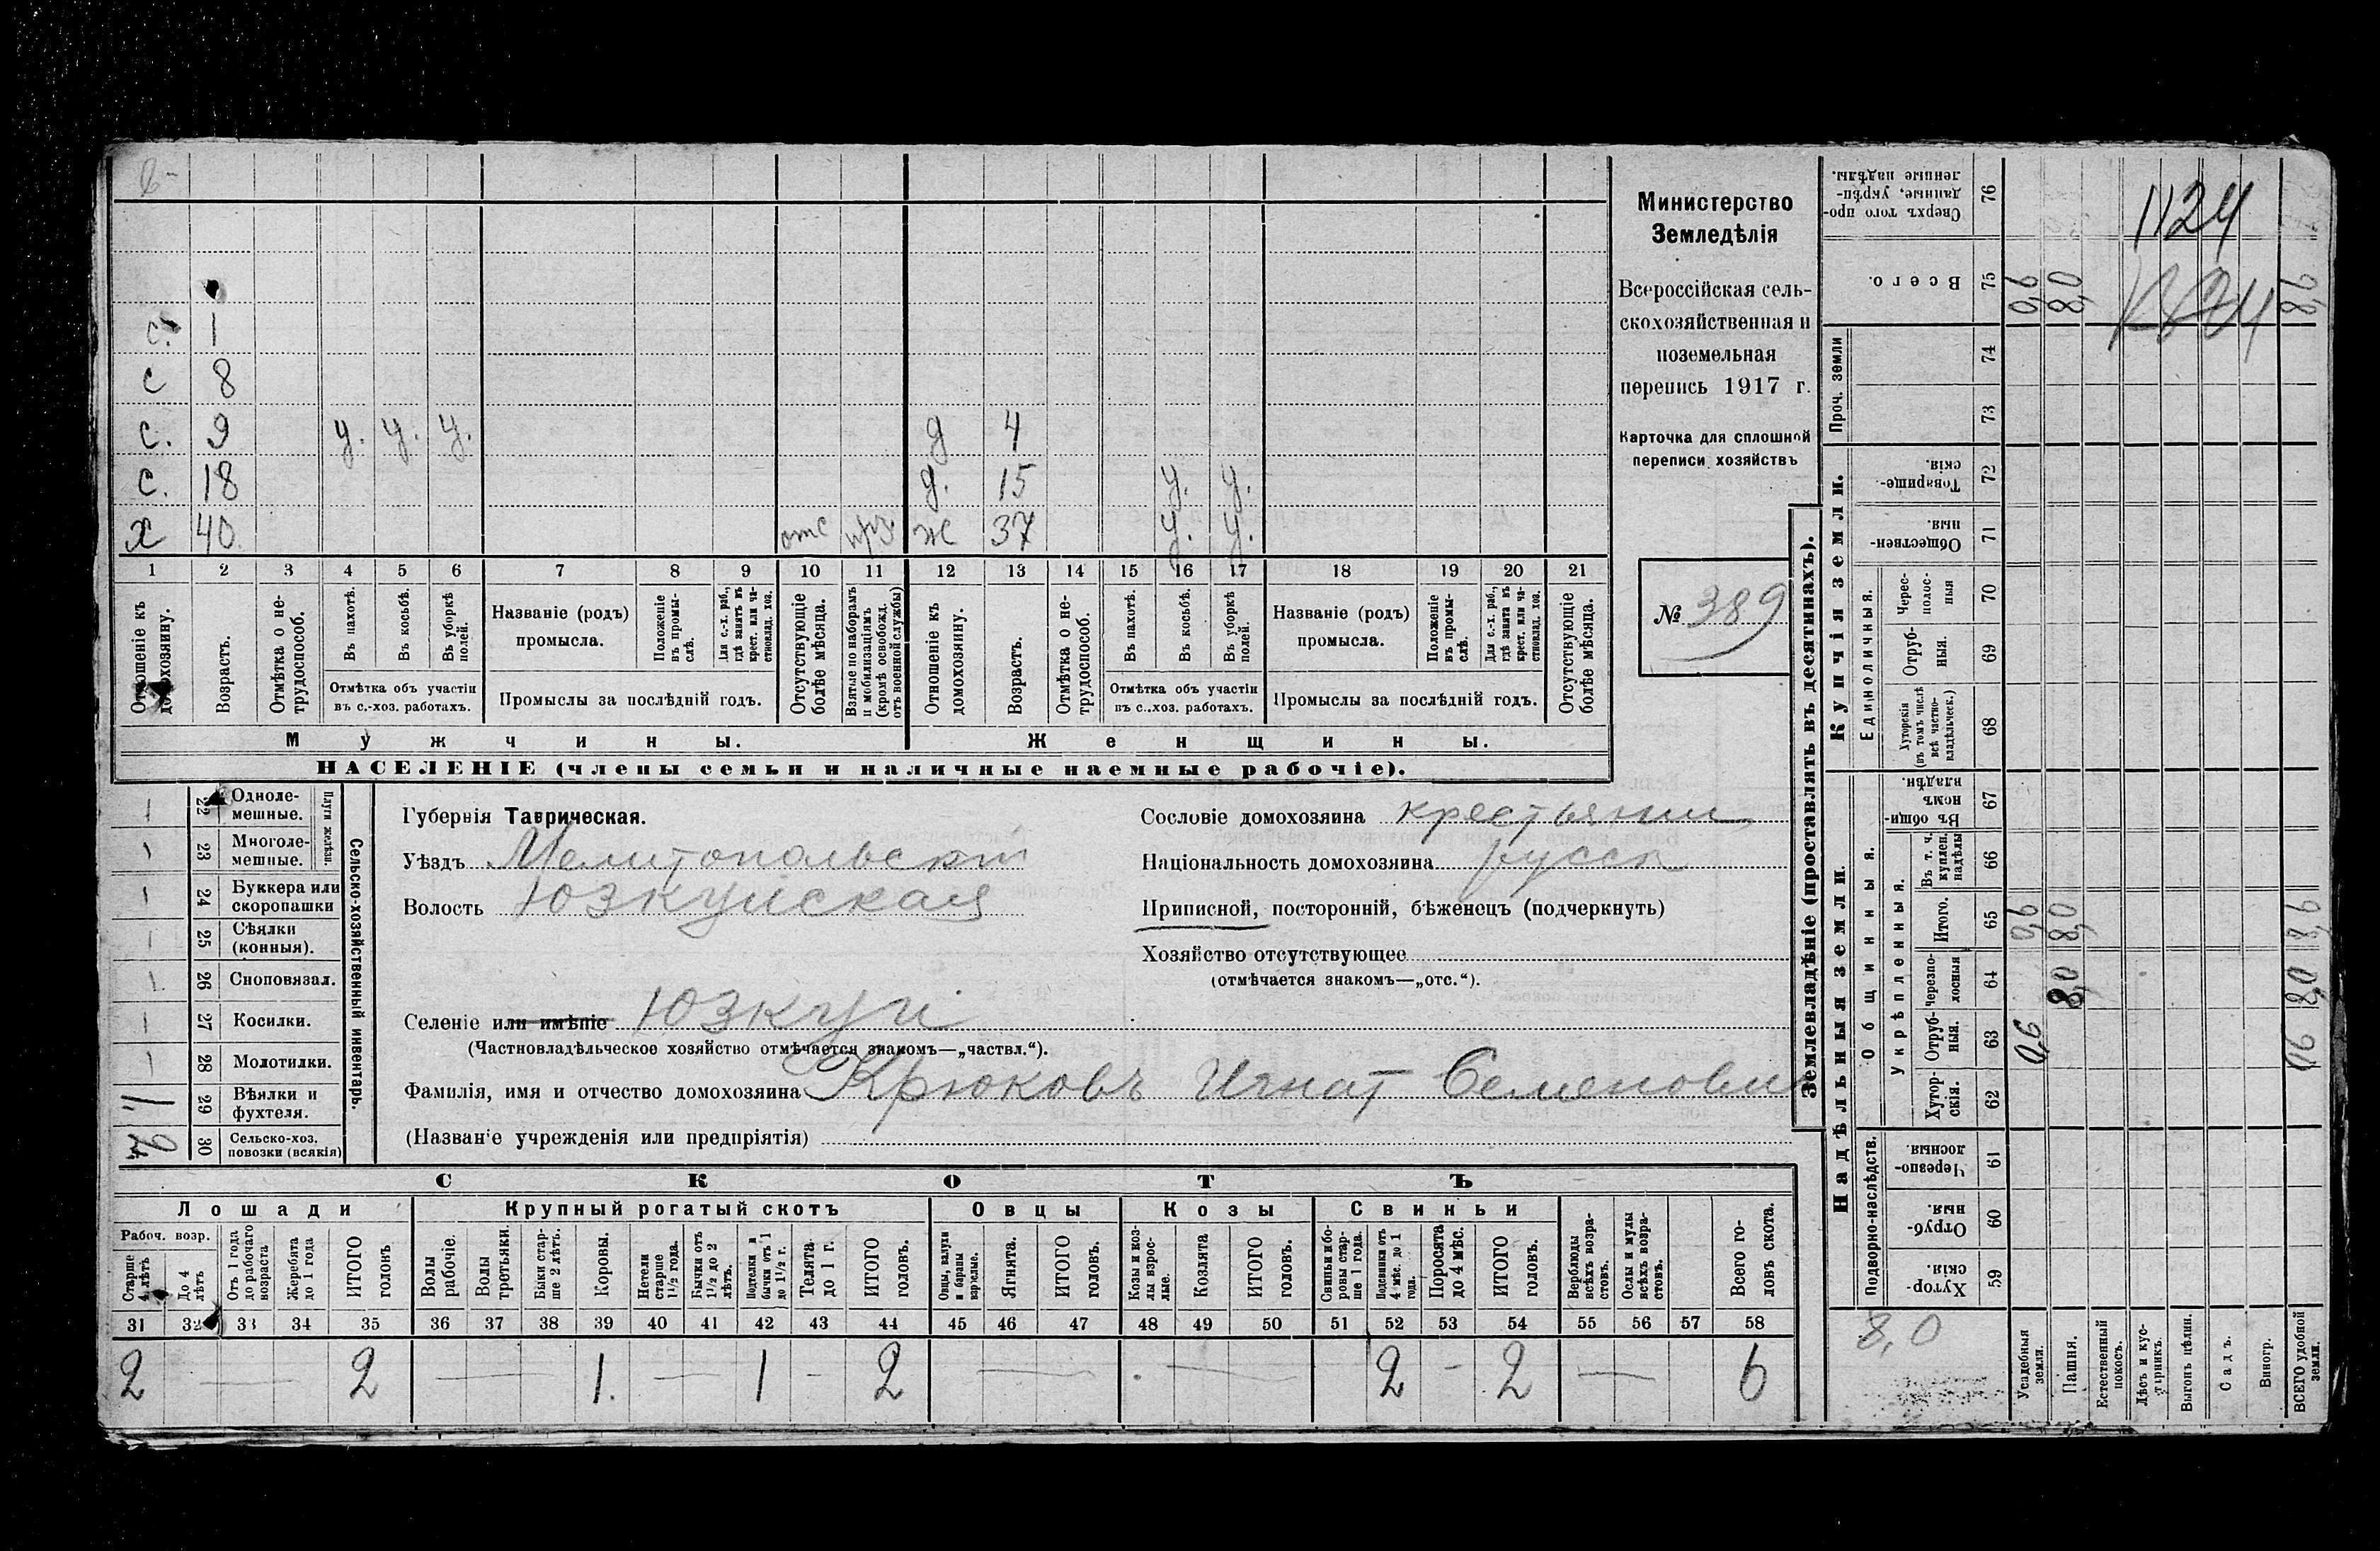 с. 1
с 8
с. 9 у. у. у. д 4
с. 18 д. 15 у. у.
х 40 отс ж 37 у. у.
1 2 3 4 5 6 7 8 9 10 11 12 13 14 15 16 17 18 19 20 21
Отношеніе къ домохозяину.
Возрастъ.
Отмѣтка о не-трудоспособ.
Въ пахотѣ.
Въ косьбѣ.
Въ уборкѣ полей.
Отмѣтка объ участіи
въ с.-хоз. работахъ.
Названіе (родъ)
промысла.
Положеніе въ промы-слѣ.
Для с.-х. раб., гдѣ занятъ въ крест. или ча-стновлад. хоз.
Промыслы за послѣдній годъ.
Отсутствующіе болѣе мѣсяца.
Взятые по наборамъ и мобилизаціямъ (кромѣ освобожд. отъ военной службы)
Отношеніе къ домохозяину.
Возрастъ.
Отмѣтка о не-трудоспособ.
Въ пахотѣ.
Въ косьбѣ.
Въ уборкѣ полей.
Отмѣтка объ участіи
въ с.-хоз. работахъ.
Названіе (родъ)
промысла.
Положеніе въ промы-слѣ.
Для с.-х. раб., гдѣ занята въ крест. или ча-стновлад. хоз.
Промыслы за послѣдній годъ.
Отсутствующіе болѣе мѣсяца.
Мужчины. Женщины.
НАСЕЛЕНІЕ (члены семьи и наличные наемные рабочіе).
Министерство
Земледѣлія
Всероссійская сель-
скохозяйственная и
поземельная
перепись 1917 г.
Карточка для сплошной
переписи хозяйствъ
№ 389
22 Одноле-
мешные.
23 Многоле-
мешные.
Плуги желѣзн.
24 Буккера или
скоропашки
25 Сѣялки
(конныя).
26 Сноповязал.
27 Косилки.
28 Молотилки.
1 29 Вѣялки и
фухтеля.
2 30 Сельско-хоз.
повозки (всякія)
Сельско-хозяйственный инвентарь.
Губернія Таврическая.
Уѣздъ Мелитопольскій
Волость Юзкуйская
Селеніе или имѣніе Юзкуи
(Частновладѣльческое хозяйство отмѣчается знакомъ—„частвл.“).
Фамилія, имя и отчество домохозяина Крюковъ Игнат Семенович
(Названіе учрежденія или предпріятія)
Сословіе домохозяина крестьянин
Національность домохозяина русск
Приписной, посторонній, бѣженецъ (подчеркнуть)
Хозяйство отсутствующее
(отмѣчается знакомъ—„отс.“).
СКОТЪ
Лошади Крупный рогатый скотъ Овцы Козы Свиньи
Рабоч. возр.
Старше 4 лѣтъ
До 4 лѣтъ
Отъ 1 года до рабочаго возраста
Жеребята до 1 года
ИТОГО головъ
Волы рабочіе.
Волы третьяки.
Быки стар-ше 2 лѣтъ.
Коровы.
Нетели старше 1½ года.
Бычки отъ 1½ до 2 лѣтъ.
Подтелки и бычки отъ 1 до 1½ г.
Телята до 1 г.
ИТОГО головъ.
Овцы, валухи и бараны взрослые.
Ягнята.
ИТОГО головъ.
Козы и коз-лы взрос-лые.
Козлята
ИТОГО головъ.
Свиньи и бо-ровы стар-ше 1 года.
Подсвинки отъ 4 мѣс. до 1 года.
Поросята до 4 мѣс.
ИТОГО головъ.
Верблюды всѣхъ возра-стовъ.
Ослы и мулы всѣхъ возра-стовъ.
Всего го-ловъ скота.
31 32 33 34 35 36 37 38 39 40 41 42 43 44 45 46 47 48 49 50 51 52 53 54 55 56 57 58
2 — 2 — 1. — 1 – 2 — — 2 – 2 — 6
Землевладѣніе (проставлять въ десятинахъ).
Надѣльныя земли. Купчія земли. Проч. земли
Подворно-наслѣдств.
Общинныя.
Укрѣпленныя.
Единоличныя.
Хутор-скія. 59
Отруб-ныя. 60
Черезпо-лосныя 61
Хутор-скія. 62
Отруб-ныя. 63
Черезпо-лосныя 64
Итого. 65
Въ т. ч. куплен. надѣлы 66
Въ общин-номъ владѣн. 67
Хуторскія (въ томъ числѣ всѣ частно-владѣльческ.) 68
Отруб-ныя. 69
Черес-полос-ныя 70
Обществен-ныя 71
Товарище-скія. 72
73
74
Всего. 75
Сверхъ того про-данные, укрѣп-ленные надѣлы. 76
1124
8,0
Усадебныя земли.
Пашня.
8,0 8,0 8,0
Естественный покосъ.
Лѣсъ и кус-тарникъ.
Выгонъ цѣлин.
Садъ.
Виногр.
ВСЕГО удобной земли.